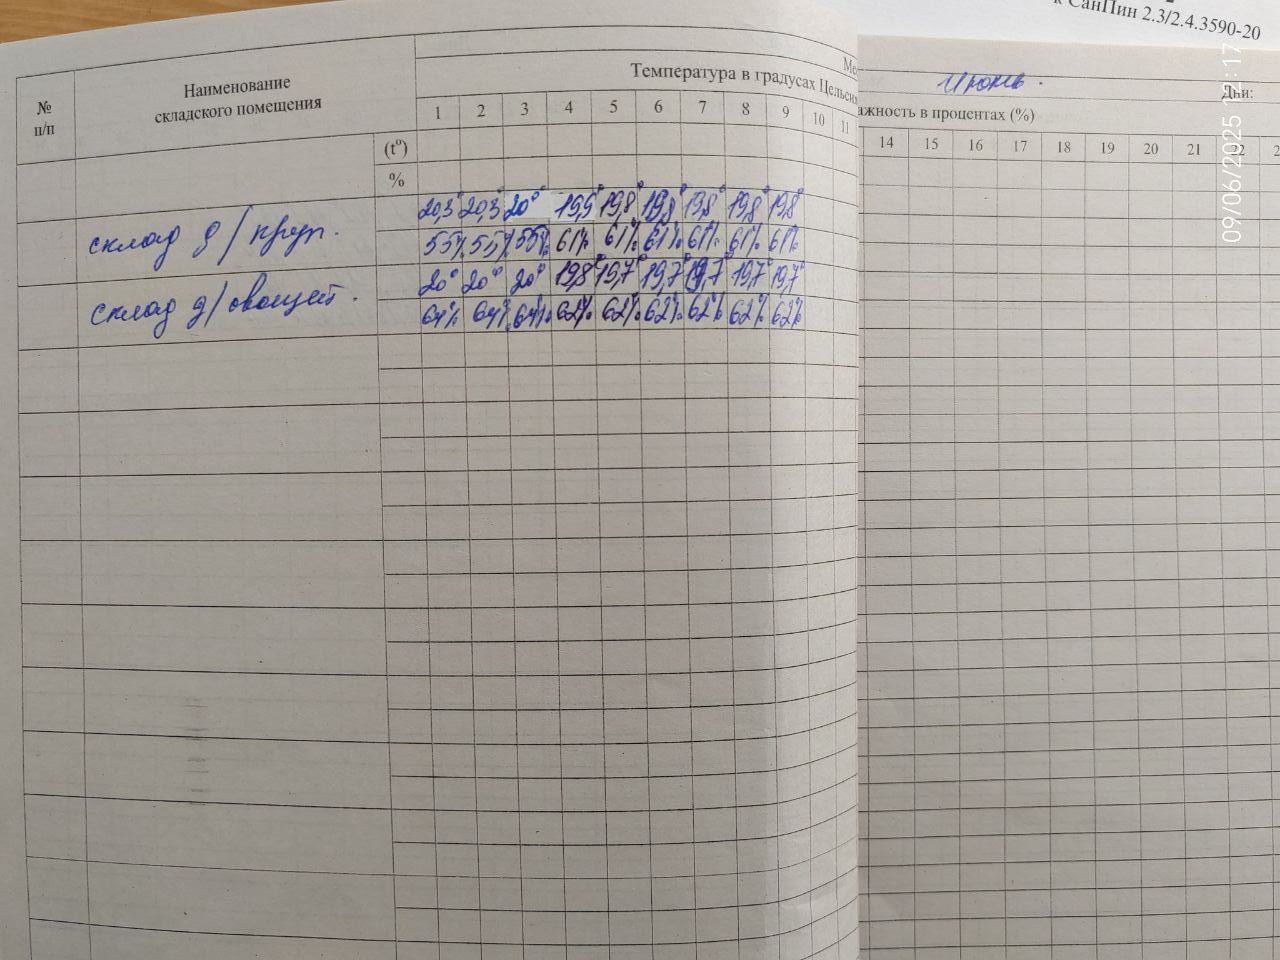 к СанПин 2.3/2.4.3590-20
Июнь.
Дни:
№
п/п
Наименование
складского помещения
Температура в градусах Цельси
ажность в процентах (%)
1 2 3 4 5 6 7 8 9 10 11
14 15 16 17 18 19 20 21 22
(t°)
%
склад д/круп.
20,3° 20,3° 20° 19,9° 19,8° 19,8° 19,8° 19,8° 19,8°
55% 55% 55% 61% 61% 61% 61% 61% 61%
склад д/овощей.
20° 20° 20° 19,8° 19,7° 19,7° 19,7° 19,7° 19,7°
64% 64% 64% 62% 62% 62% 62% 62% 62%
09/06/2025 12:17